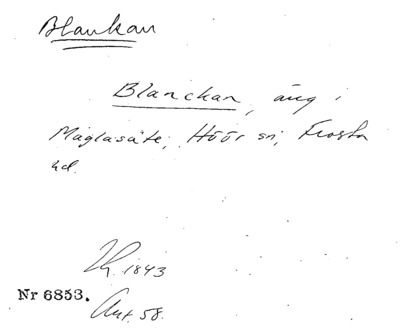 Blankan
Blanckan, äng i
Maglasäte, Höör sn, Frosta
hd.
1843
Nr 6853.
Ant. 58.